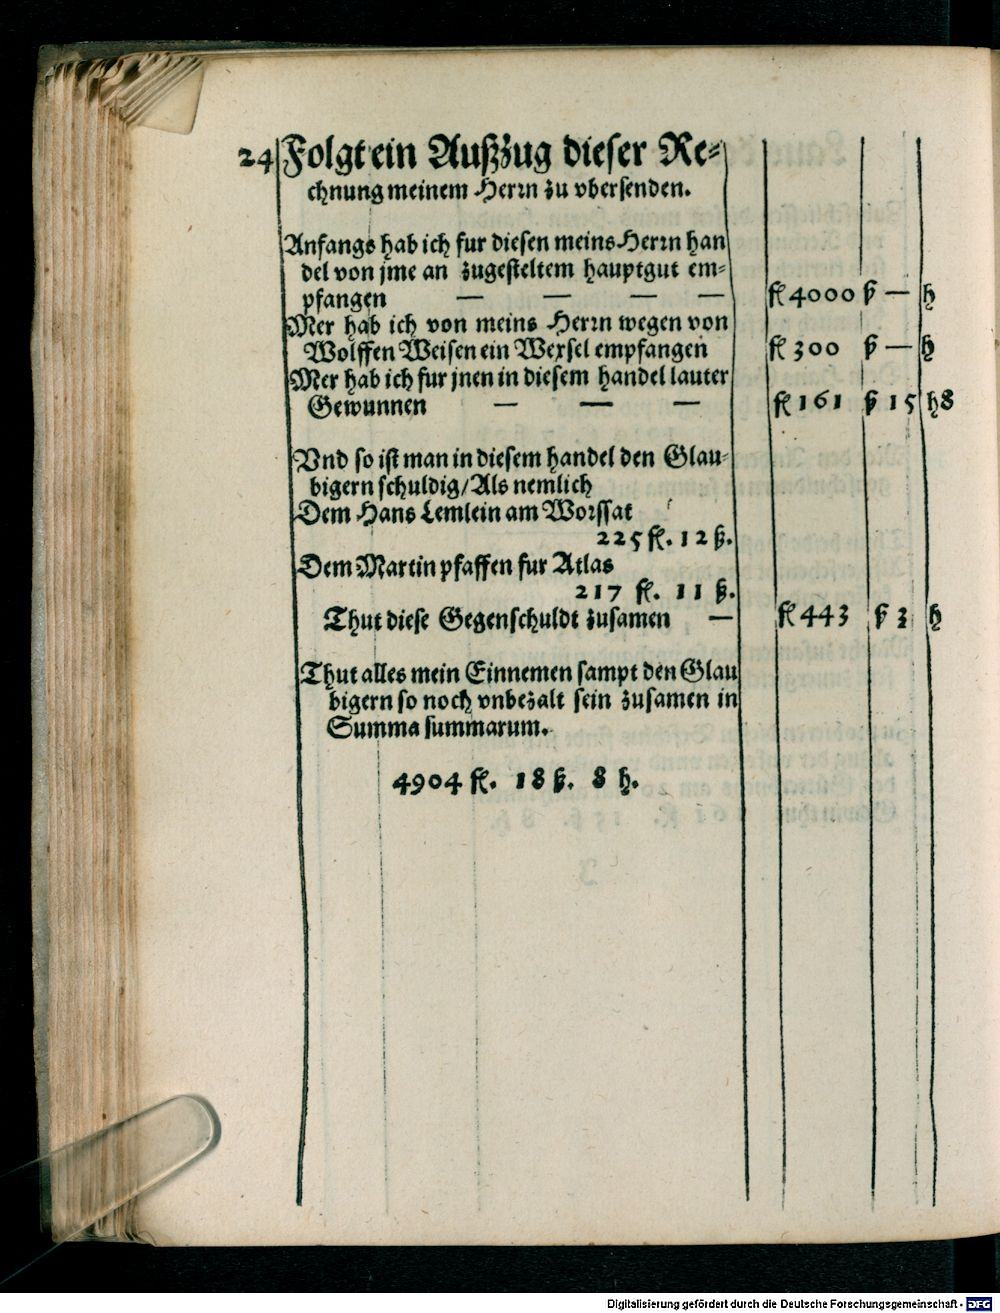 24 Folgt ein Außzug dieser Re-
chnung meinem Herrn zu vbersenden.
Anfangs hab ich fur diesen meins Herrn han
del von jme an zugesteltem hauptgut em-
pfangen — — — — fl 4000 ß — h
Mer hab ich von meins Herrn wegen von
Wolffen Weisen ein Wexsel empfangen fl 300 ß — h
Mer hab ich fur jnen in diesem handel lauter
Gewunnen — — — fl 161 ß 15 h 8
Vnd so ist man in diesem handel den Glau-
bigern schuldig/ Als nemlich
Dem Hans Lemlein am Worssat
225 fl. 12 ß.
Dem Martin pfaffen fur Atlas
217 fl. 11 ß.
Thut diese Gegenschuldt zusamen — fl 443 ß 3 h
Thut alles mein Einnemen sampt den Glau
bigern so noch vnbezalt sein zusamen in
Summa summarum.
4904 fl. 18 ß. 8 h.
Digitalisierung gefördert durch die Deutsche Forschungsgemeinschaft - DFG